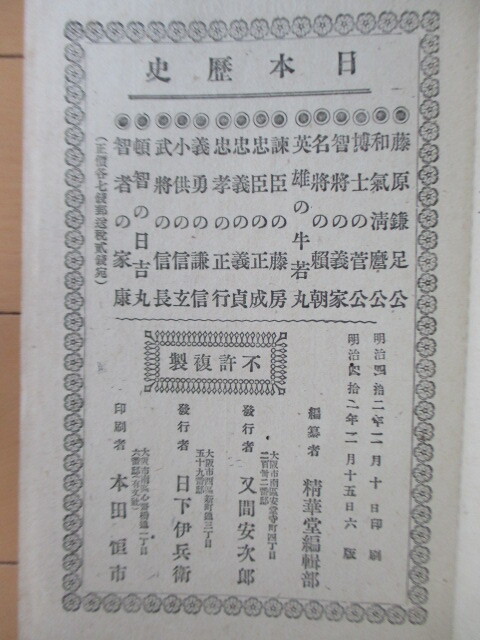 日本歷史
◉藤原鎌足公
◉和氣淸麿公
◉博士の菅公
◉智將の義家
◉名將の賴朝
◉英雄の牛若丸
◉諫臣の藤房
◉忠臣の正成
◉忠義の義貞
◉忠孝の正行
◉義勇の謙信
◉小供の信玄
◉武將の信長
◉頓智の日吉丸
◉智者の家康
(正價各七錢郵送稅貳錢宛)
不許複製
明治四拾二年二月十日印刷
明治四拾二年二月十五日六版
編纂者 精華堂編輯部
大阪市南區安堂寺町四丁目
二百卅二番邸
發行者 又間安次郎
大阪市西區新町通三丁目
五十九番邸
發行者 日下伊兵衛
大阪市南區心齋橋通二丁目
六番邸(有文社)
印刷者 本田恒市